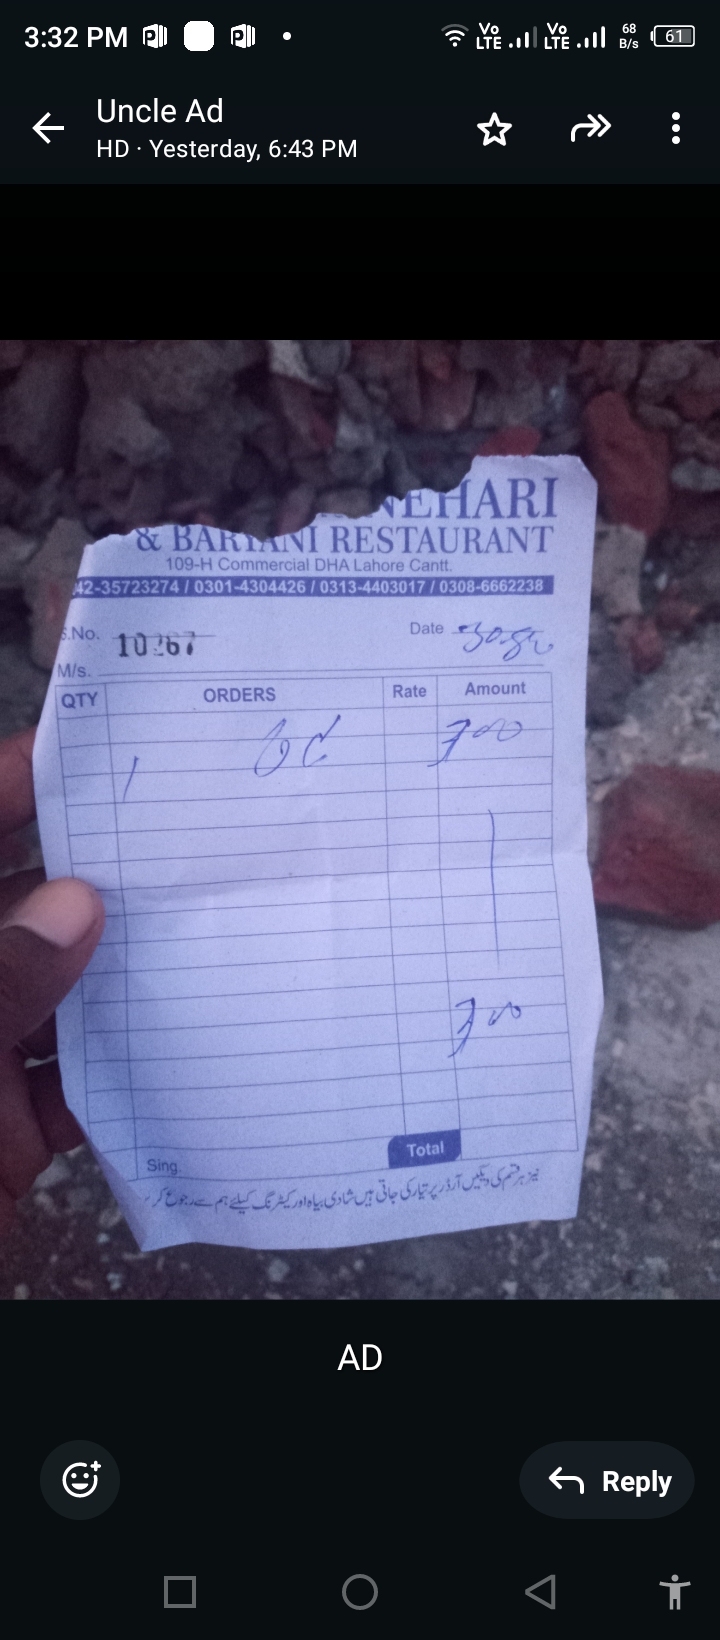 3:32 PM
Vo LTE Vo LTE 68 B/s 61
Uncle Ad
HD · Yesterday, 6:43 PM
NEHARI
& BARYANI RESTAURANT
109-H Commercial DHA Lahore Cantt.
42-35723274 / 0301-4304426 / 0313-4403017 / 0308-6662238
S.No. 10267 Date
M/s.
QTY ORDERS Rate Amount
1
Total
Sing.
نیز ہر قسم کی دیگیں آرڈر پر تیار کی جاتی ہیں شادی بیاہ اور کیٹرنگ کیلئے ہم سے رجوع کر
AD
Reply